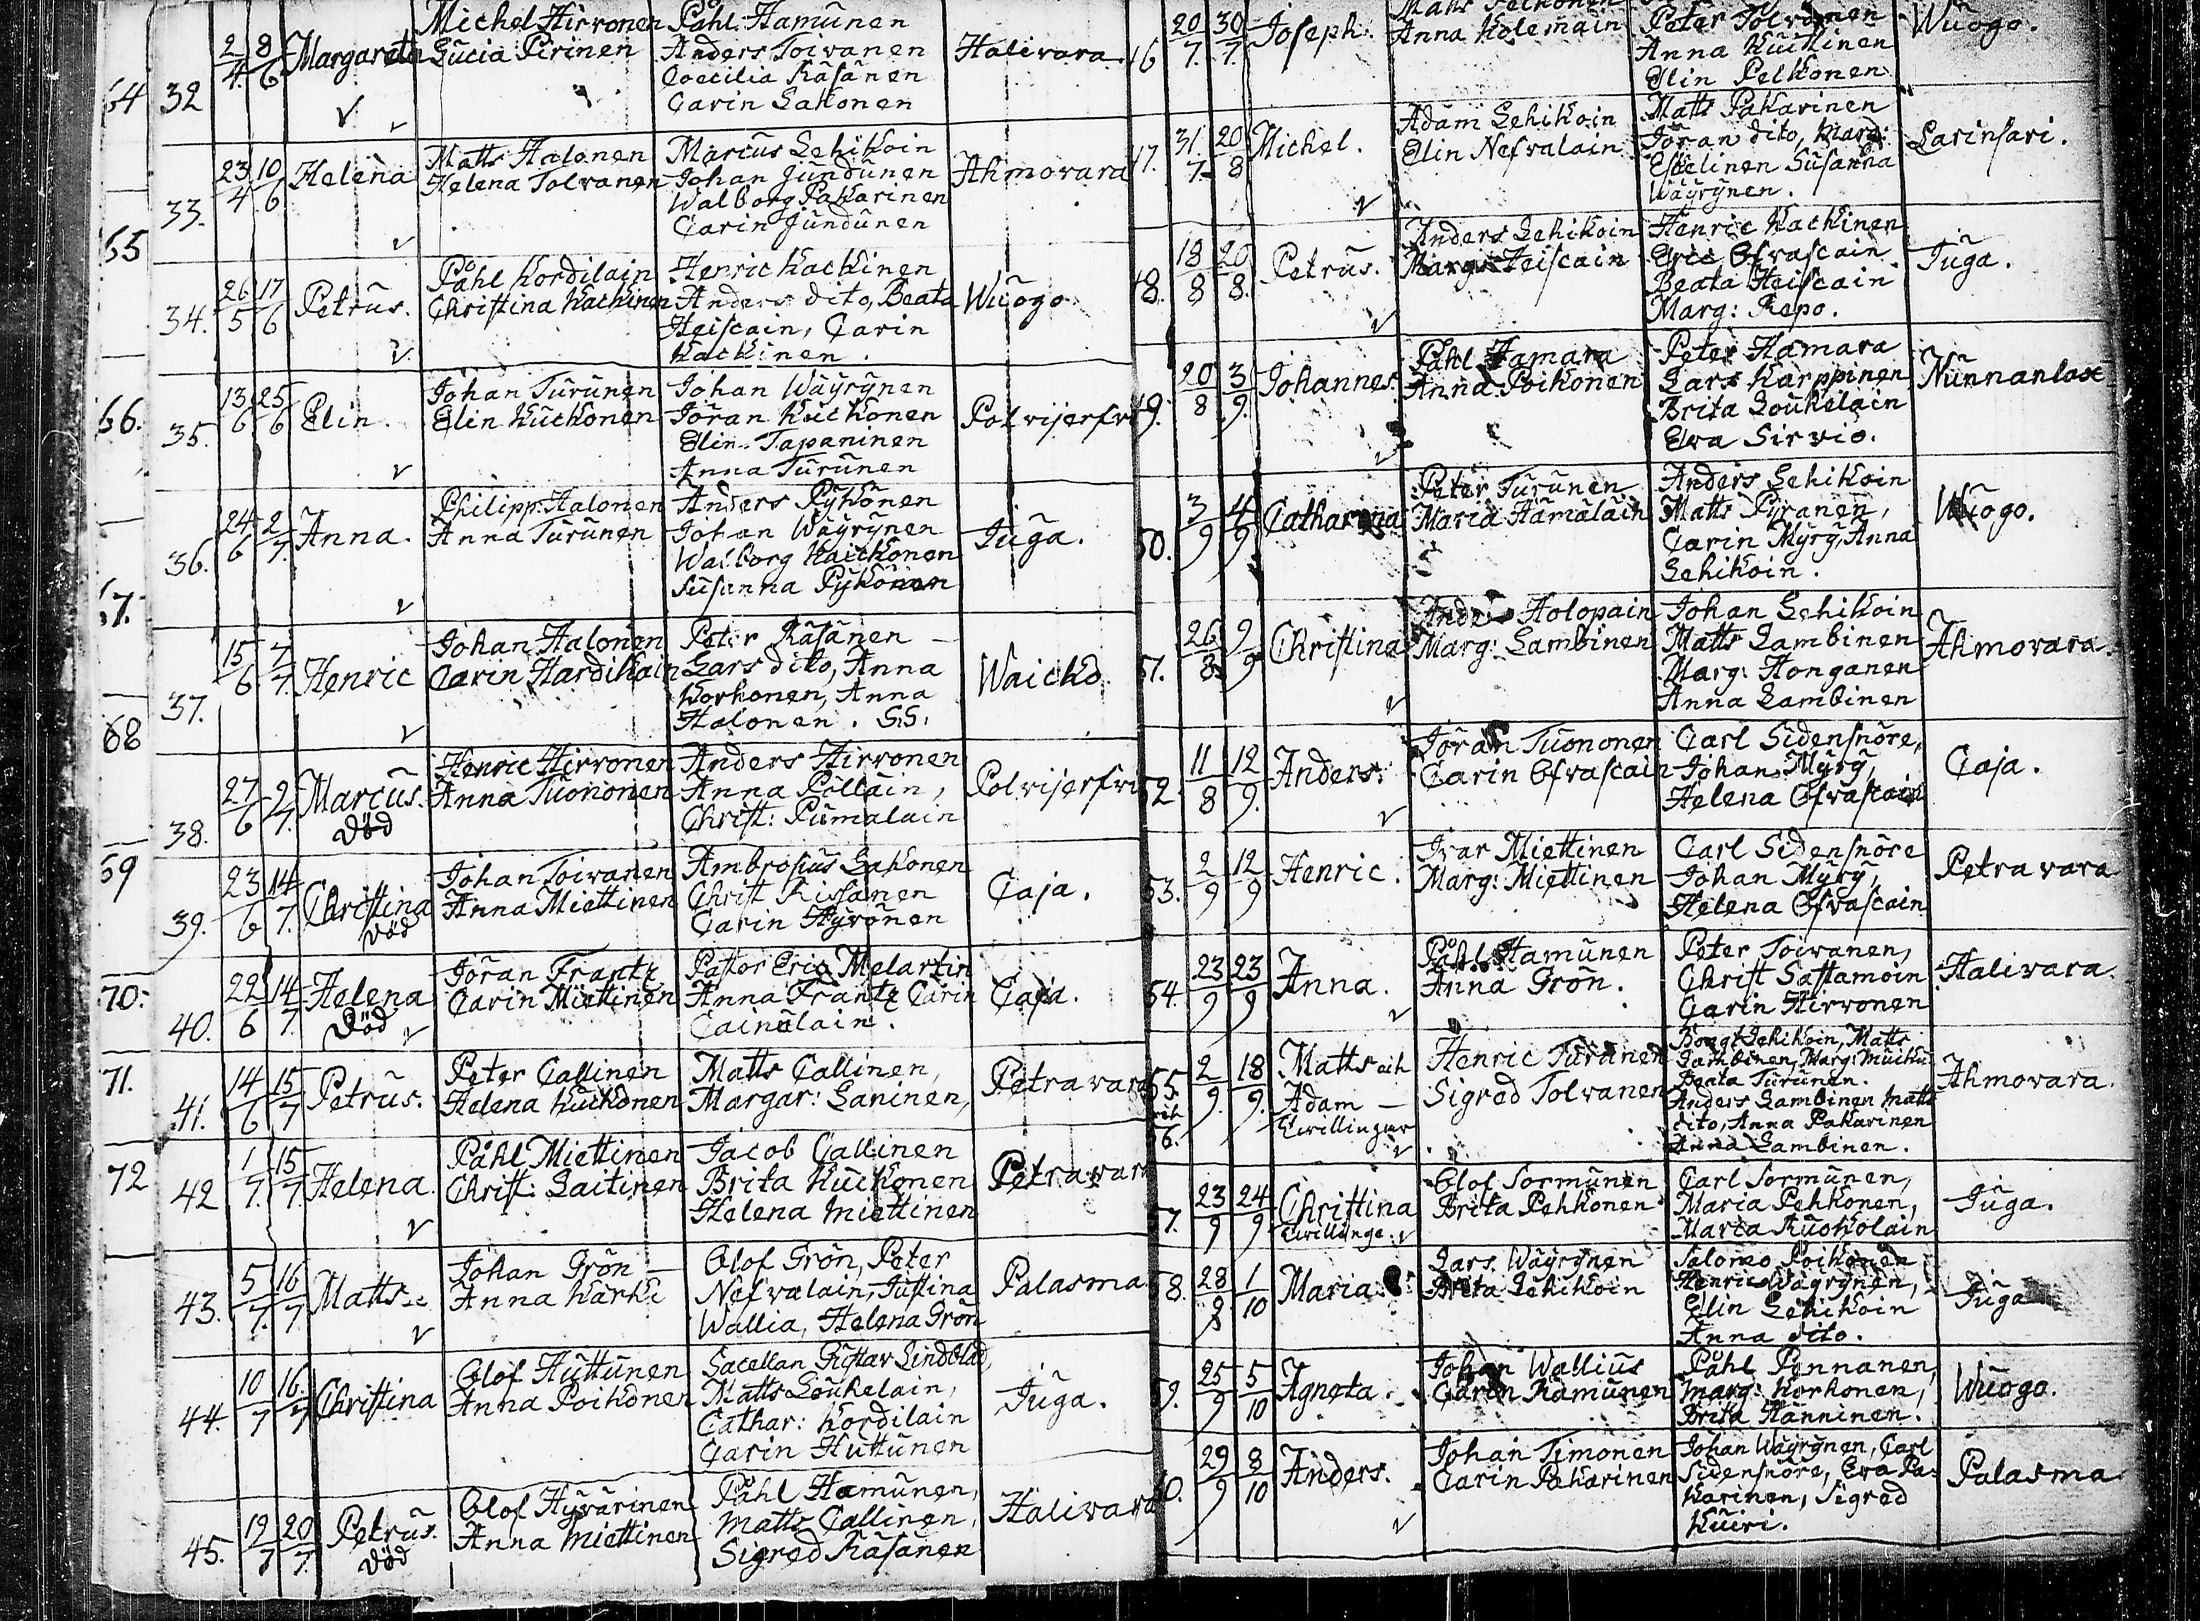 64
32
2/4 8/6 Margareta
Michel Hirvonen
Lucia Pirinen
Påhl Hamunen
Anders Toivanen
Coecilia Räsänen
Carin Sakonen
Halivara
33.
23/4 10/6 Helena
Matts Halonen
Helena Tolvanen
Marcus Lehikoin
Johan Jundunen
Walborg Pakarinen
Carin Jundunen
Ahmovara
65
34.
26/5 17/6 Petrus.
Påhl Kordilain
Christina Kackinen
Henric Kackinen
Anders dito, Beata
Heiscain, Carin
Kackinen.
Wuogo
66.
35.
13/6 25/6 Elin.
Johan Turunen
Elin Kuckonen
Johan Wäyrynen
Jöran Kuckonen
Elin Tapaninen
Anna Turunen
Polvijerfvi
36.
24/6 2/7. Anna.
Philipp Halonen
Anna Turunen
Anders Pykönen
Johan Wäyrynen
Walborg Kaickonen
Susanna Pykönen
Juga.
67.
37.
15/6 7/7. Henric
Johan Halonen
Carin Hardikain
Peter Räsänen
Lars dito, Anna
Korhonen, Anna
Halonen. S.S.
Waicko
68
38.
27/6 2/7. Marcus.
död
Henric Hirvonen
Anna Tuononen
Anders Hirvonen
Anna Pöllain,
Christ: Pumalain
Polvijerfvi
69
39.
23/6 14/7. Christina
död
Johan Toivanen
Anna Miettinen
Ambrosius Sakonen
Christ Rissanen
Carin Hyvönen
Caja.
70.
40.
22/6 14/7. Helena
död
Jöran Frantz
Carin Miettinen
Pastor Eric Melartin
Anna Frantz Carin
Cainulain.
Caja.
71.
41.
14/6 15/7 Petrus.
Peter Callinen
Helena Kuckonen
Matts Callinen,
Margar: Saninen,
Petravara
72
42
1/7. 15/7. Helena.
Påhl Miettinen
Christ: Laitinen
Jacob Callinen
Brita Kuckonen
Helena Miettinen
Petravara
43.
5/7. 16/7 Matts
Johan Grön
Anna Kärki
Olof Grön, Peter
Nefvalain, Justina
Wallia, Helena Grön
Palasma
44.
10/7 16/7 Christina
Olof Huttunen
Anna Poikonen
Sacellan Gustav Lindblad,
Matts Loukelain,
Cathar: Kordilain
Carin Huttunen
Juga.
45.
19/7 20/7. Petrus.
död
Olof Hyvärinen
Anna Miettinen
Påhl Hamunen,
Matts Callinen,
Sigred Räsänen
Halivara
46
20/7. 30/7. Joseph.
Matts Pelkonen
Anna Kolemain
Peter Tolvanen
Anna Kuckinen
Elin Pelkonen
Wuogo.
47.
31./7 20/8 Michel.
Adam Lehikoin
Elin Nefvalain
Matts Pakarinen
Jöran dito, Marg:
Eskelinen Susanna
Wäyrynen.
Larinsari.
48.
18/8 20/8. Petrus.
Anders Lehikoin
Marg: Heiscain
Henric Kackinen
Eric Ofvascain
Beata Heiscain
Marg: Repo.
Juga.
49.
20/8 3/9. Johannes.
Påhl Hamara
Anna Poikonen
Peter Hamara
Lars Karppinen
Brita Loukelain
Eva Sirviö.
Nunnanlax
50.
3/9 4/9 Catharina
Peter Turunen
Maria Hämäläin
Anders Lehikoin
Matts Pyranen,
Carin Myry, Anna
Lehikoin.
Wuogo.
51.
26/8 9/9 Christina
Anders Holopain
Marg: Lambinen
Johan Lehikoin
Matts Lambinen
Marg: Honganen
Anna Lambinen
Ahmovara.
52.
11/8 12/9. Anders.
Jöran Tuononen
Carin Ofvascain
Carl Sidensnöre,
Johan Myry,
Helena Ofvascain
Caja.
53.
2/9 12/9 Henric.
Ivar Miettinen
Marg: Miettinen
Carl Sidensnöre
Johan Myry,
Helena Ofvascain
Petravara
54.
23/9 23/9 Anna.
Påhl Hamunen
Anna Grön.
Peter Toivanen,
Christ Sastamoin
Carin Hirvonen
Halivara.
55
och
56.
2/9. 18/9. Matts och
Adam
Tvillingar
Henric Turunen
Sigred Tolvanen
Bengt Lehikoin, Matts
Lambinen, Marg: Muicku
Beata Turunen.
Anders Lambinen Matts
dito, Anna Pakarinen
Anna Lambinen.
Ahmovara.
57.
23/9 24/9 Christina
Tvillinge:
Olof Sormunen
Brita Pehkonen
Carl Sormunen,
Maria Pehkonen,
Maria Ruokolain
Juga.
58.
28/9 1/10 Maria
Lars Wäyrynen
Brita Lehikoin
Salomo Poikonen
Henric Wäyrynen,
Elin Lehikoin
Anna dito.
Juga
59.
25/9 5/10 Agneta.
Johan Wallius
Carin Ramunen
Påhl Pennanen,
Marg: Korhonen,
Brita Hänninen.
Wuogo.
60.
29/9 8/10 Anders.
Johan Timonen
Carin Pakarinen
Johan Wäyrynen, Carl
Sidensnöre, Eva Pa-
karinen, Sigred
Kuiri.
Palasma